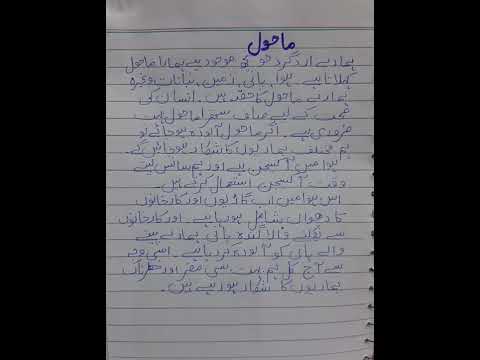 ماحول
ہمارے ارد گرد جو کچھ موجود ہے ہمارا ماحول
کہلاتا ہے۔ ہوا، پانی، زمین، نباتات وغیرہ
ہمارے ماحول کا حصہ ہیں۔ انسان کی
صحت کے لیے صاف ستھرا ماحول بہت
ضروری ہے۔ اگر ماحول آلودہ ہو جائے تو
ہم مختلف بیماریوں کا شکار ہو جائیں گے۔
ہوا میں آکسیجن ہے اور ہم سانس لیتے
وقت آکسیجن استعمال کرتے ہیں۔
اس ہوا میں اب گاڑیوں اور کارخانوں
کا دھواں شامل ہو رہا ہے۔ اور کارخانوں
سے نکلنے والا گندہ پانی ہمارے پینے
والے پانی کو آلودہ کر رہا ہے۔ اسی وجہ
سے آج کل ہم بہت سی مضر اور خطرناک
بیماریوں کا شکار ہو رہے ہیں۔